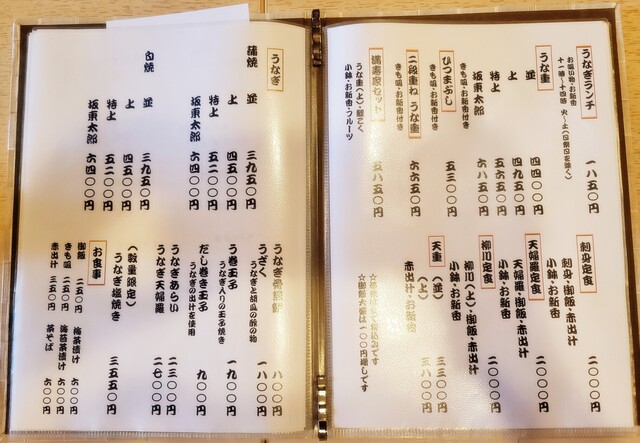 うなぎランチ 一八五〇円
お吸い物・お新香
十一時～十四時 火～土(日祭日を除く)
うな重
並 四四〇〇円
上 四九五〇円
特上 五六五〇円
坂東太郎 六八五〇円
きも吸・お新香付き
ひつまぶし 五三〇〇円
きも吸・お新香付き
二段重ね うな重 六六五〇円
きも吸・お新香付き
セット 五八五〇円
うな重(上)・鯉こく
小鉢・お新香・フルーツ
刺身定食 二〇〇〇円
刺身・御飯・赤出汁
小鉢・お新香
天婦羅定食 二〇〇〇円
天婦羅・御飯・赤出汁
小鉢・お新香
柳川定食 二〇〇〇円
柳川(上)・御飯・赤出汁
小鉢・お新香
天重
(並) 二三〇〇円
(上) 三八〇〇円
赤出汁・お新香
☆御飯大盛は一〇〇円増しです
うなぎ
蒲焼
並 三九五〇円
上 四五〇〇円
特上 五二〇〇円
坂東太郎 六四〇〇円
白焼
並 三九五〇円
上 四五〇〇円
特上 五二〇〇円
坂東太郎 六四〇〇円
うなぎ骨煎餅 八〇〇円
うざく 一八〇〇円
うなぎと胡瓜の酢の物
う巻玉子 一九〇〇円
うなぎ入りの玉子焼き
だし巻き玉子 九〇〇円
うなぎの出汁を使用
うなぎあらい 二三〇〇円
うなぎ天婦羅 二七〇〇円
(数量限定)
うなぎ塩焼き 三五五〇円
お食事
御飯 二五〇円
きも吸 二五〇円
赤出汁 三五〇円
梅茶漬け 六〇〇円
海苔茶漬け 六〇〇円
茶そば 六〇〇円